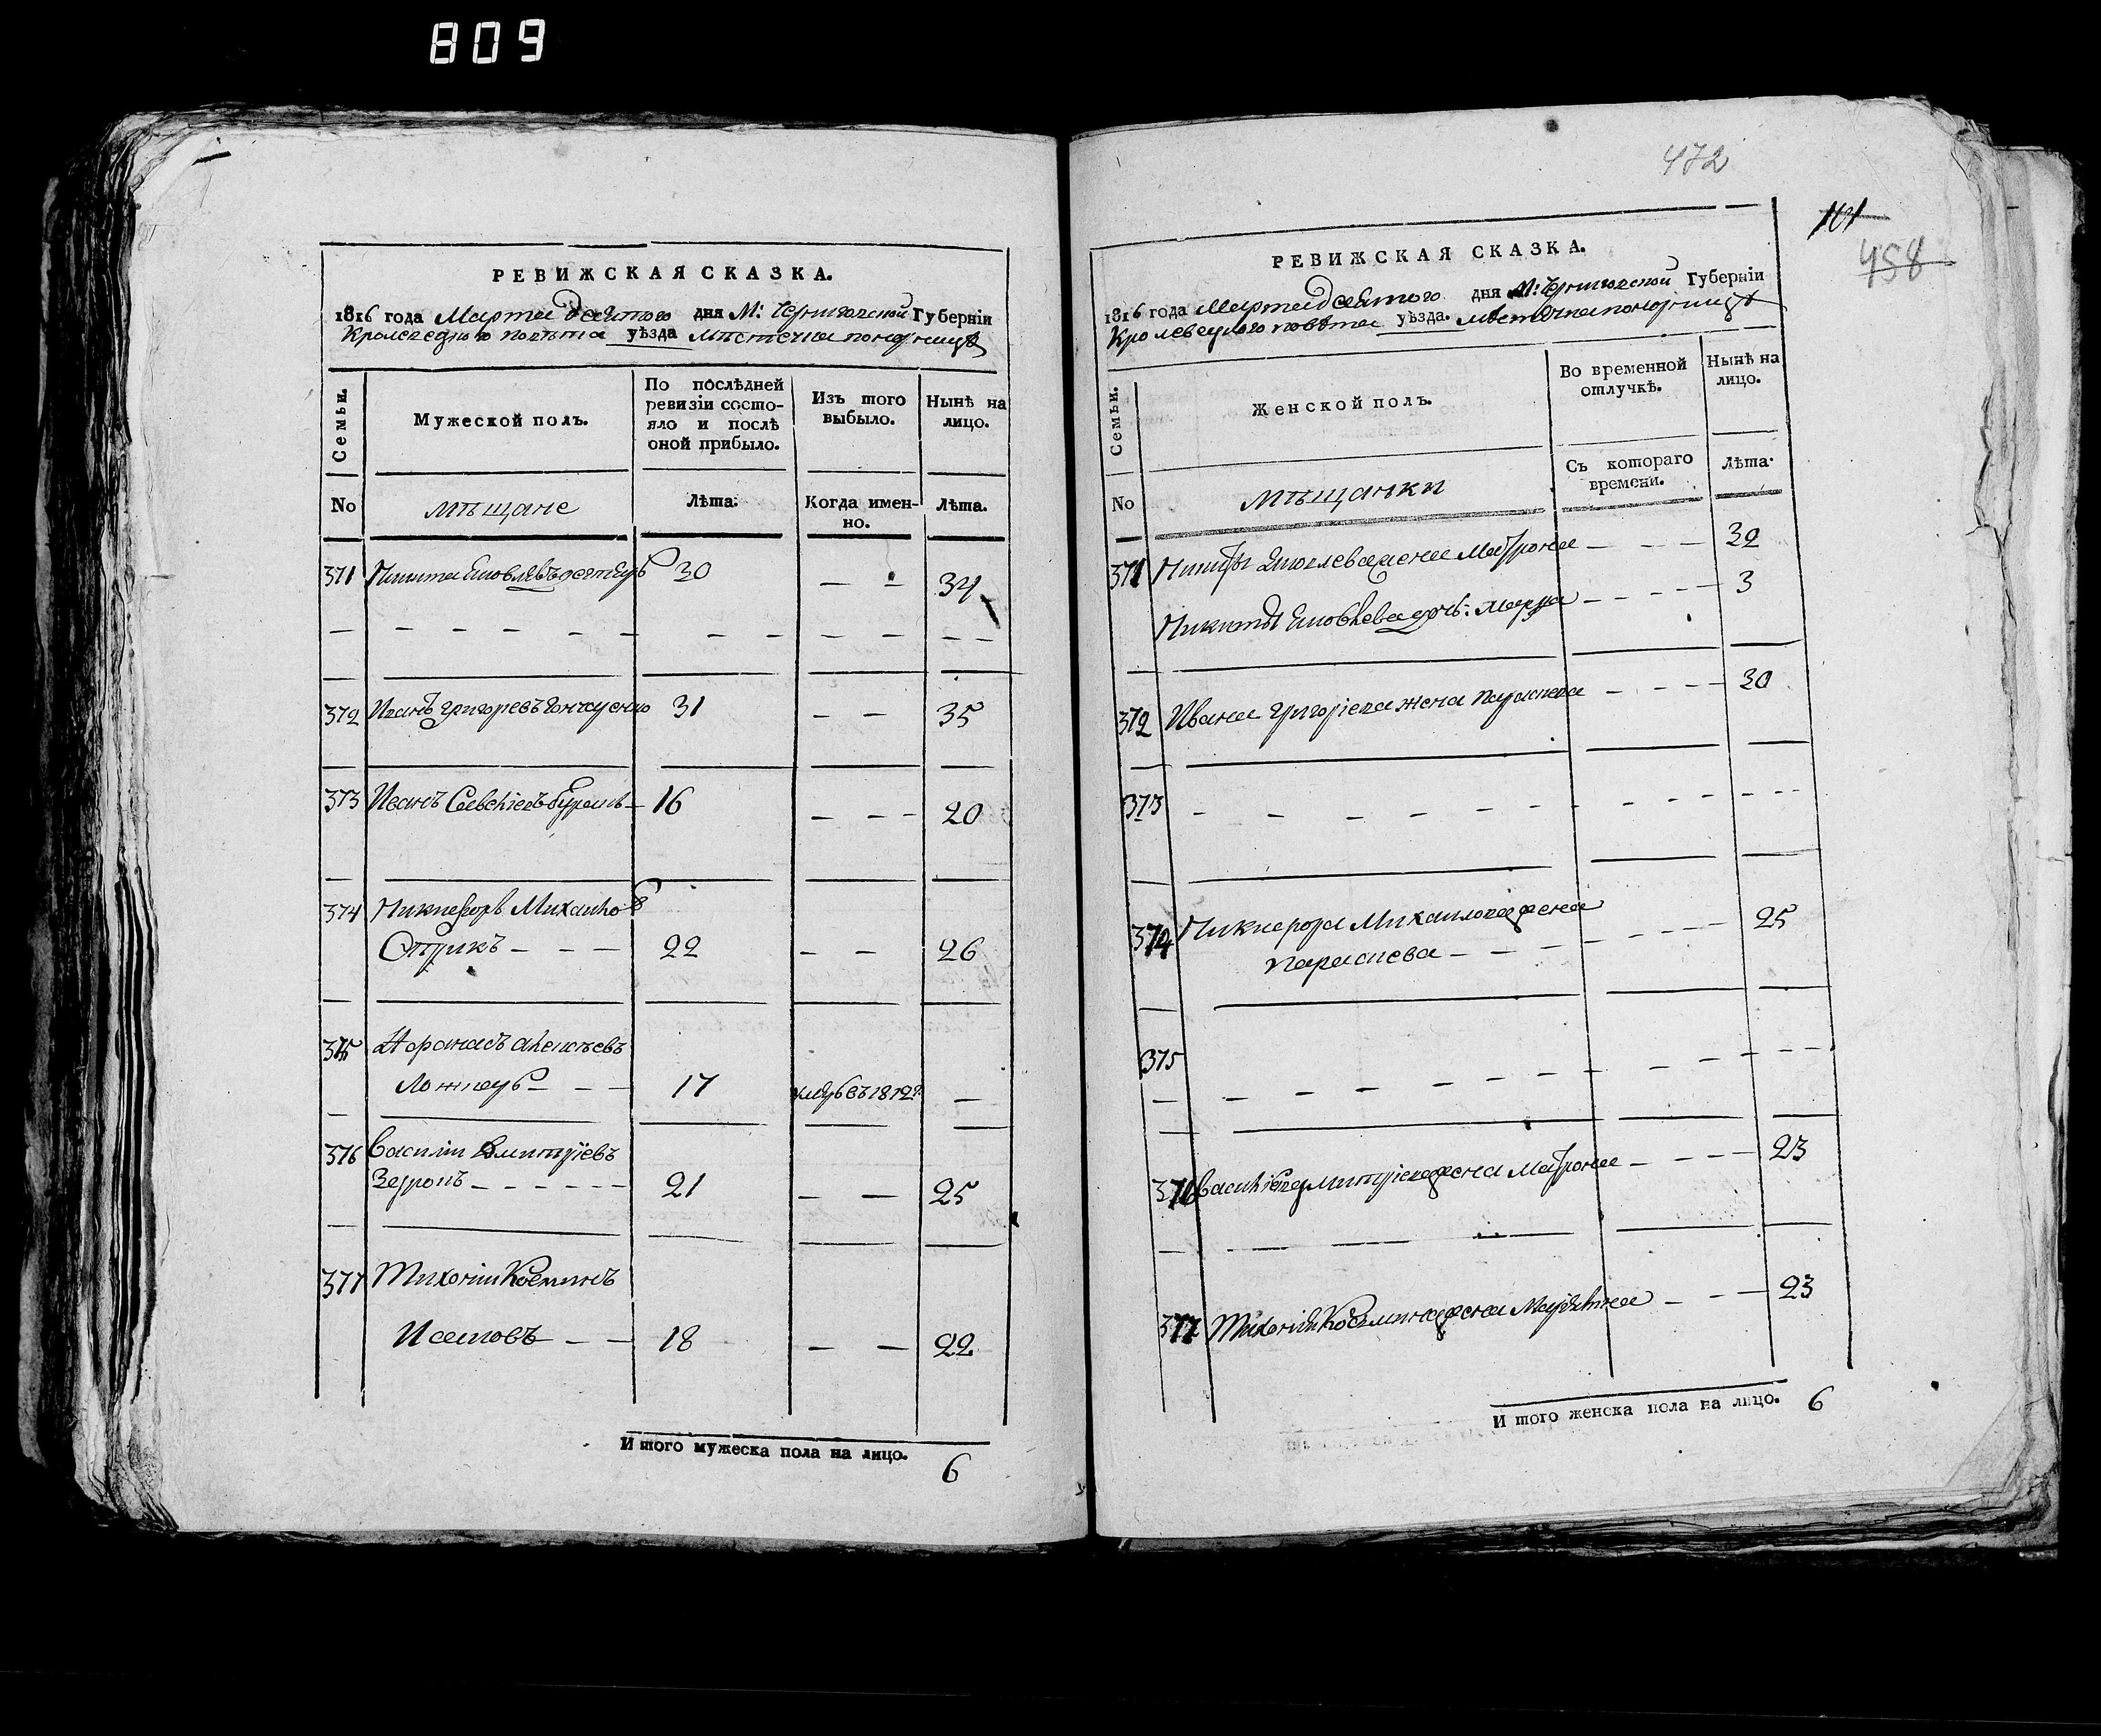 809
РЕВИЖСКАЯ СКАЗКА.
1816 года Марта Девятого дня М: Черниговской Губерніи
Кролевецкого повѣта уѣзда мѣстечка понорницѣ
Семьи.
Мужеской полъ.
По послѣдней ревизіи состо-
яло и послѣ
оной прибыло.
Изъ того
выбыло.
Нынѣ на
лицо.
No
мѣщане
Лѣта.
Когда имен-
но.
Лѣта.
371 Никита Яковлевъ 30 — — 34
372 Иванъ григоревъ гончаренко 31 — — 35
373 Иванъ 16 — — — 20
374 Никифоръ Михаило
22 — — 26
375 Афанасъ алексѣевъ
17 1812 —
376 Василіи Дмитріевъ
21 — — 25
377 Тихоніи Косминъ
Исаковъ — — 18 — — 22
И того мужеска пола на лицо. 6
472
101
458
РЕВИЖСКАЯ СКАЗКА.
1816 года Марта Девятого дня М: Черниговской Губерніи
Кролевецкого повѣта уѣзда. мѣстечка понорницѣ
Семьи.
Женской полъ.
Во временной
отлучкѣ.
Нынѣ на
лицо.
No
мѣщанки
Съ котораго
времени.
Лѣта.
371 Никиты Яковлева жена Матрона — — — 32
Никиты Яковлева дочь: Марфа — — — — 3
372 Ивана григоріева жена параскева — — — — 30
373 — — — —
374 Никифора Михаилова жена 25
параскева — —
375 — — — —
376 Василіа дмитріева жена Матрона — — — — 23
377 Тихоніи Космина жена — — — 23
И того женска пола на лицо. 6